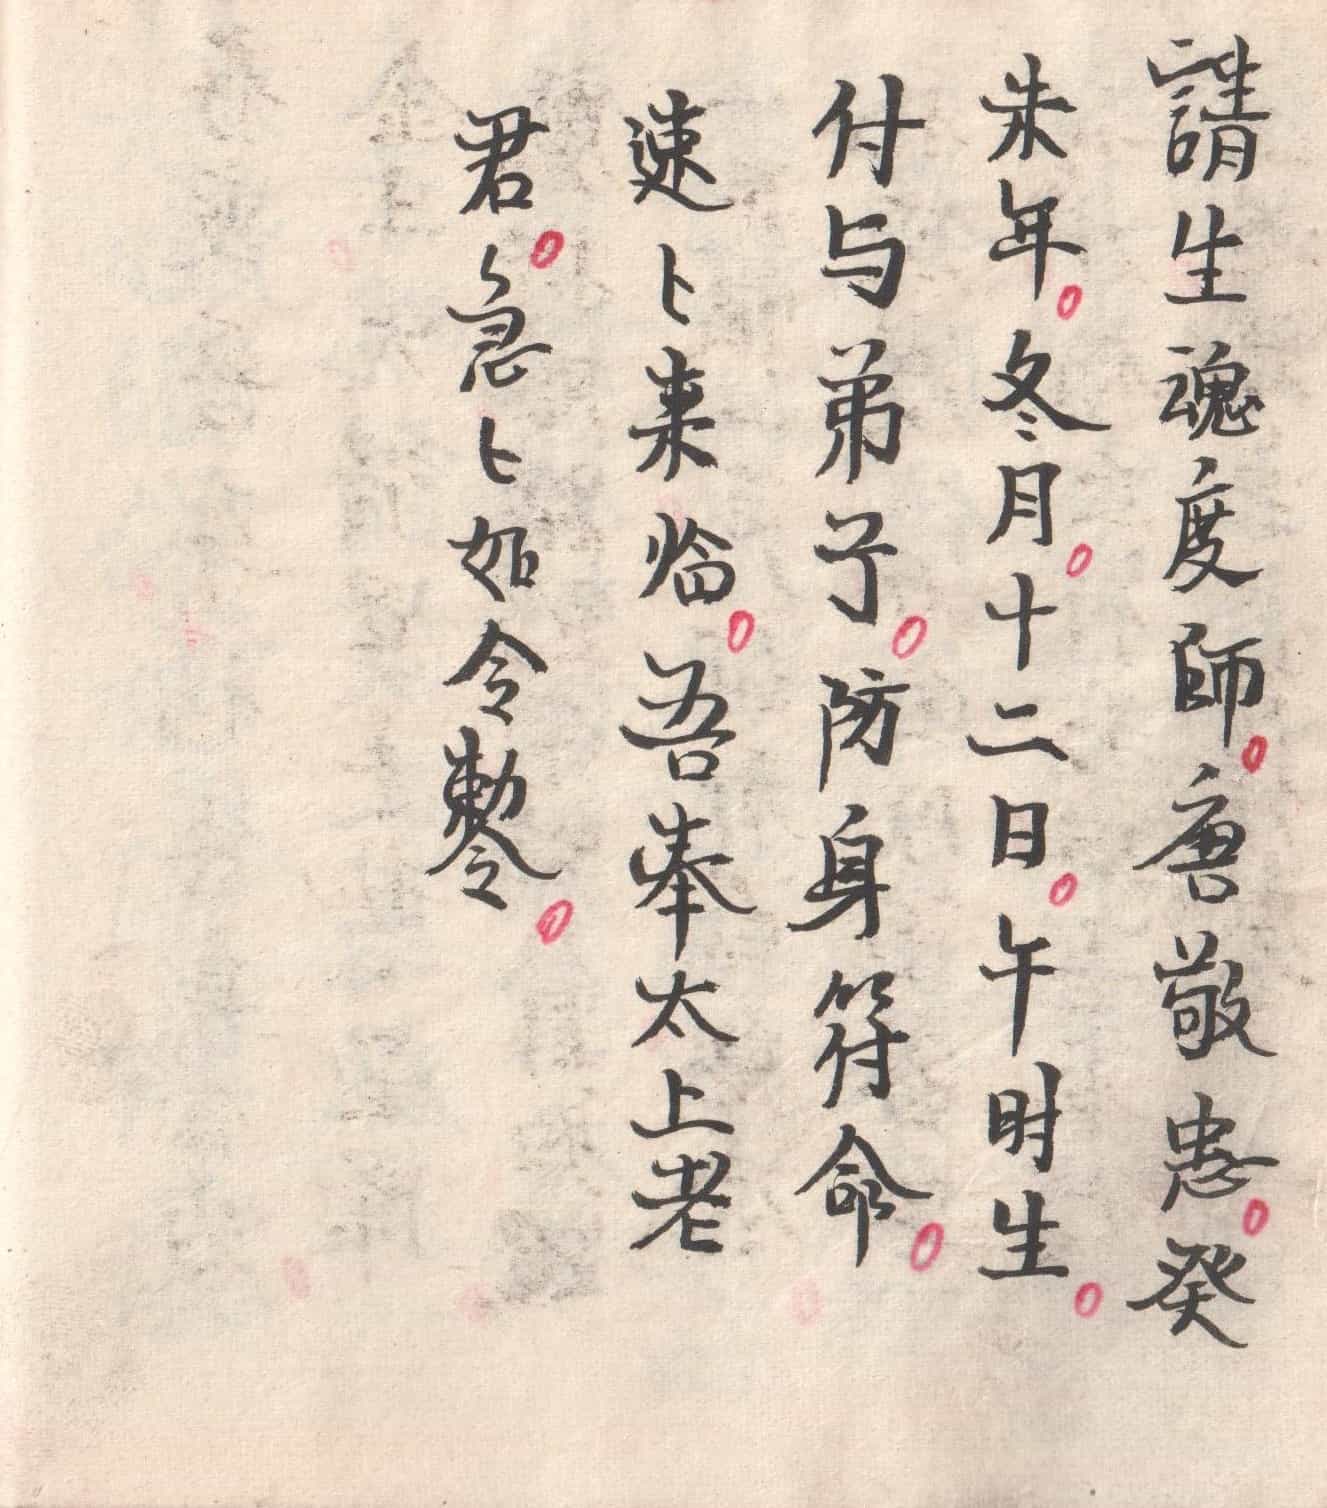 請生魂度師。唐敬忠。癸
未年。冬月。十二日。午时生。
付与弟子。防身符命。
速〻来临。吾奉太上老
君。急〻如令勅令。